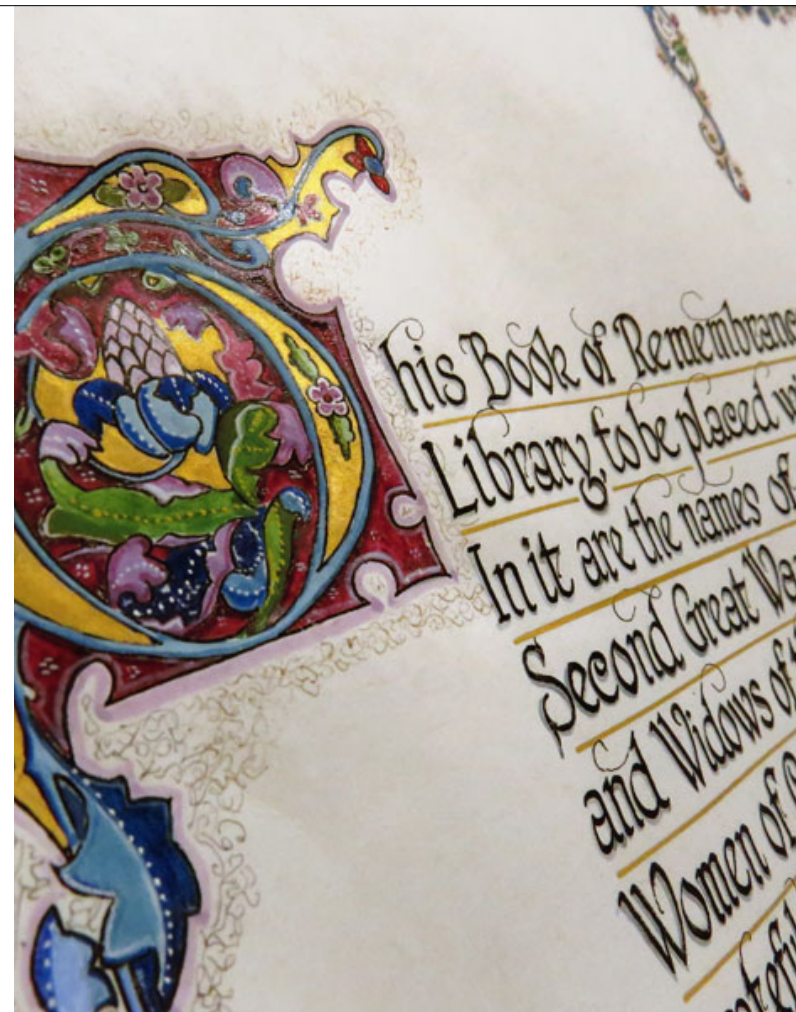 This Book of Remembranc
Library, to be placed w
In it are the names of
Second Great Wa
and Widows of t
Women of